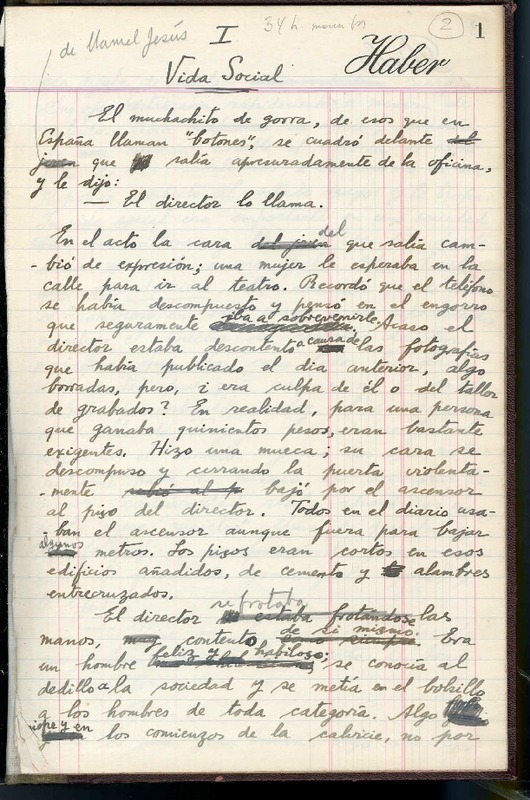 de Manuel Jesús
I
2
1
Haber
Vida Social
El muchachito de gorra, de esos que en
España llaman "botones", se cuadró delante del
joven que salía apresuradamente de la oficina,
y le dijo:
— El director lo llama.
En el acto la cara del joven del que salía cam-
- bió de expresión; una mujer le esperaba en la
calle para ir al teatro. Recordó que el teléfono
se había descompuesto y pensó en el engorro
que seguramente iba a sobrevenirle. Acaso el
director estaba descontento a causa de las fotografías
que había publicado el dia anterior, algo
borradas, pero, ¿ era culpa de él o del taller
de grabados? En realidad, para una persona
que ganaba quinientos pesos, eran bastante
exigentes. Hizo una mueca; su cara se
descompuso y cerrando la puerta violenta-
- mente subió al p. bajó por el ascensor
al piso del director. Todos en el diario usa-
- ban el ascensor aunque fuera para bajar
algunos metros. Los pisos eran cortos en esos
edificios añadidos, de cemento y alambres
entrecruzados.
El director se frotaba estaba frotándose las
manos, muy contento de sí mismo. Era
un hombre feliz y habiloso; se conocía al
dedillo a la sociedad y se metía en el bolsillo
a los hombres de toda categoría. Algo
miope y en los comienzos de la calvicie, no por